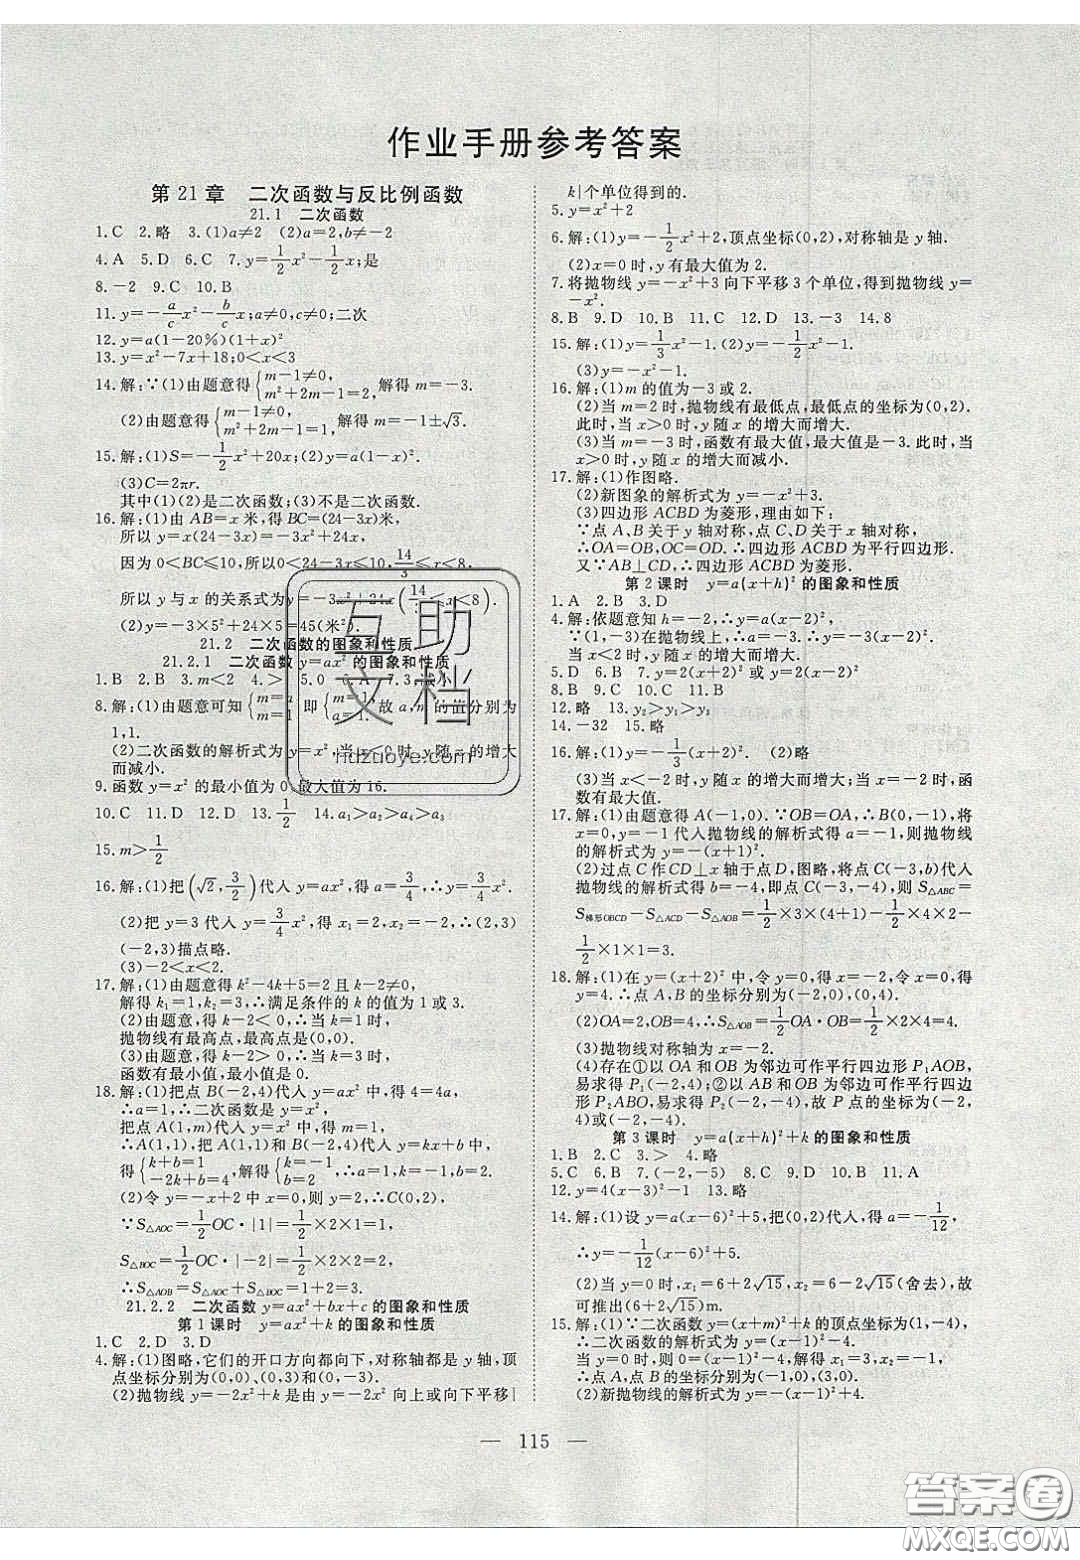 作业手册参考答案
第21章 二次函数与反比例函数
21.1 二次函数
1.C 2.略 3.(1)a≠2 (2)a=2,b≠-2
4.A 5.D 6.C 7.y=1/2x²-1/2x;是
8.-2 9.C 10.B
11.y=-a/cx²-b/cx;a≠0,c≠0;二次
12.y=a(1-20%)(1+x)²
13.y=x²-7x+18;0<x<3
14.解:∵(1)由题意得{m-1≠0, m²+2m-1=2, 解得m=-3.
(2)由题意得{m-1≠0, m²+2m-1=1, 解得m=-1±√3.
15.解:(1)S=-1/2x²+20x;(2)S=πr²;
(3)C=2πr.
其中(1)(2)是二次函数;(3)不是二次函数.
16.解:(1)由AB=x米,得BC=(24-3x)米,
所以y=x(24-3x)=-3x²+24x,
因为0<BC≤10,所以0<24-3x≤10,14/3≤x<8,
所以y与x的关系式为y=-3x²+24x(14/3≤x<8).
(2)y=-3×5²+24×5=45(米²).
21.2 二次函数的图象和性质
21.2.1 二次函数y=ax²的图象和性质
1.B 2.B 3.m<2 4.> 5.0 6.A 7.3 小
8.解:(1)由题意可知{m=a, m=1, 即{m=1, a=1. 故a,m的值分别为
1,1.
(2)二次函数的解析式为y=x²,当x<0时,y随x的增大
而减小.
9.函数y=x²的最小值为0,最大值为16.
10.C 11.D 12.D 13.1/2 14.a₁>a₂>a₄>a₃
15.m>1/2
16.解:(1)把(√2,3/2)代入y=ax²,得a=3/4,∴y=3/4x².
(2)把y=3代入y=3/4x²,得x₁=2,x₂=-2,∴(2,3)
(-2,3)描点略.
(3)-2<x<2.
17.解:(1)由题意得k²-4k+5=2且k-2≠0,
解得k₁=1,k₂=3,∴满足条件的k的值为1或3.
(2)由题意,得k-2<0,∴当k=1时,
抛物线有最高点,最高点是(0,0).
(3)由题意,得k-2>0,∴当k=3时,
函数有最小值,最小值是0.
18.解:(1)把点B(-2,4)代入y=ax²中,得4=4a,
∴a=1,∴二次函数是y=x²,
把点A(1,m)代入y=x²中,得m=1,
∴A(1,1),把A(1,1)和B(-2,4)代入y=kx+b中,
得{k+b=1, -2k+b=4, 解得{k=-1, b=2.
(2)令y=-x+2中x=0,则y=2,∴C(0,2),
∵S△AOC=1/2OC·|1|=1/2×2×1=1,
S△BOC=1/2OC·|-2|=1/2×2×2=2,
∴S△AOB=S△AOC+S△BOC=1+2=3.
21.2.2 二次函数y=ax²+bx+c的图象和性质
第1课时 y=ax²+k的图象和性质
1.C 2.D 3.D
4.解:(1)图略,它们的开口方向都向下,对称轴都是y轴,顶
点坐标分别为(0,0)、(0,3)和(0,-3).
(2)抛物线y=-2x²+k是由y=-2x²向上或向下平移|
k|个单位得到的.
5.y=x²+2
6.解:(1)y=-1/2x²+2,顶点坐标(0,2),对称轴是y轴.
(2)x=0时,y有最大值为2.
7.将抛物线y=-x²+3向下平移3个单位,得到抛物线y=
-x².
8.B 9.D 10.B 11.C 12.D 13.-3 14.8
15.解:(1)y=1/3x²-1.(2)y=-1/2x²-1.
(3)y=-x²-1.
16.解:(1)m的值为-3或2.
(2)当m=2时,抛物线有最低点,最低点的坐标为(0,2).
此时,当x>0时,y随x的增大而增大.
(3)当m=-3时,函数有最大值,最大值是-3.此时,当
x>0时,y随x的增大而减小.
17.解:(1)作图略.
(2)新图象的解析式为y=-x²+3.
(3)四边形ACBD为菱形,理由如下:
∵点A、B关于y轴对称,点C、D关于x轴对称,
∴OA=OB,OC=OD.∴四边形ACBD为平行四边形.
又∵AB⊥CD,∴四边形ACBD为菱形.
第2课时 y=a(x+h)²的图象和性质
1.A 2.B 3.D
4.解:依题意知h=-2,∴y=a(x-2)².
∵(1,-3)在抛物线上,∴a=-3.∴y=-3(x-2)².
当x<2时,y随x的增大而增大.
5.D 6.B 7.y=2(x-2)²
8.B 9.D 10.C 11.B
12.略 13.y₂>y₁>y₃
14.-32 15.略
16.解:(1)y=-1/3(x+2)². (2)略
(3)当x<-2时,y随x的增大而增大;当x=-2时,函
数有最大值.
17.解:(1)由题意得A(-1,0).∵OB=OA,∴B(0,-1),将
x=0,y=-1代入抛物线的解析式得a=-1,则抛物线
的解析式为y=-(x+1)².
(2)过点C作CD⊥x轴于点D,图略,将点C(-3,b)代入
抛物线的解析式得b=-4,即点C(-3,-4),则S△ABC=
S梯形OBCD-S△ACD-S△AOB=1/2×3×(4+1)-1/2×4×2-
1/2×1×1=3.
18.解:(1)在y=(x+2)²中,令y=0,得x=-2,令x=0,得
y=4.∴点A,B的坐标分别为(-2,0),(0,4).
(2)OA=2,OB=4,∴S△AOB=1/2OA·OB=1/2×2×4=4.
(3)抛物线对称轴为x=-2.
(4)存在①以OA和OB为邻边可作平行四边形P₁AOB,
易求得P₁(-2,4);②以AB和OB为邻边可作平行四边形
P₂ABO,易求得P₂(-2,-4),故P点的坐标为(-2,
4)或(-2,-4).
第3课时 y=a(x+h)²+k的图象和性质
1.B 2.C 3.> 4.略
5.C 6.B 7.(-2,-5) 8.C 9.D 10.B 11.A
12.y=4(x-3)²-1 13.略
14.解:(1)设y=a(x-6)²+5,把(0,2)代入,得a=-1/12,
∴y=-1/12(x-6)²+5.
(2)当y=0时,x₁=6+2√15,x₂=6-2√15(舍去),故
可推出(6+2√15)m.
15.解:(1)∵二次函数y=(x+m)²+k的顶点坐标为(1,-4),
∴二次函数的解析式为y=(x-1)²-4.
当y=0时,则0=(x-1)²-4,∴x₁=3,x₂=-1,
∴点A,点B的坐标分别为(-1,0),(3,0).
(2)新抛物线的解析式为y=-(x-1)²+4.
115
互助
文档
hdzuoye.com
答案圈
MXQE.COM